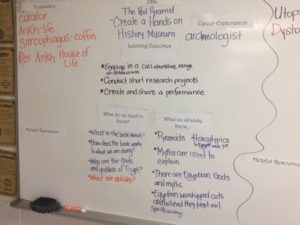 Vocabulary
curator
Ankh-life
Sarcophagus-coffin
Per Ankh: House of
Life
The Red Pyramid
Create a Hands on
History Museum
Learning Outcomes
Career Exploration
archeologist
Utop
Dysto
• Engage in a collaborative range
of discussions
• Conduct short research projects
• Create and share a performance
Helpful Resources
What do we need to
know?
• What is the book about?
• How does the book apply
to what we are doing?
• Who are the Gods
and goddess of Egypt?
• What are
What we already
know...
• Pyramids
• Hieroglyphics
• Myths are used to
explain
• There are Egyptian Gods
and myths
• Egyptian worshipped cats
and believed they kept evil
spirits away
Helpful Resource